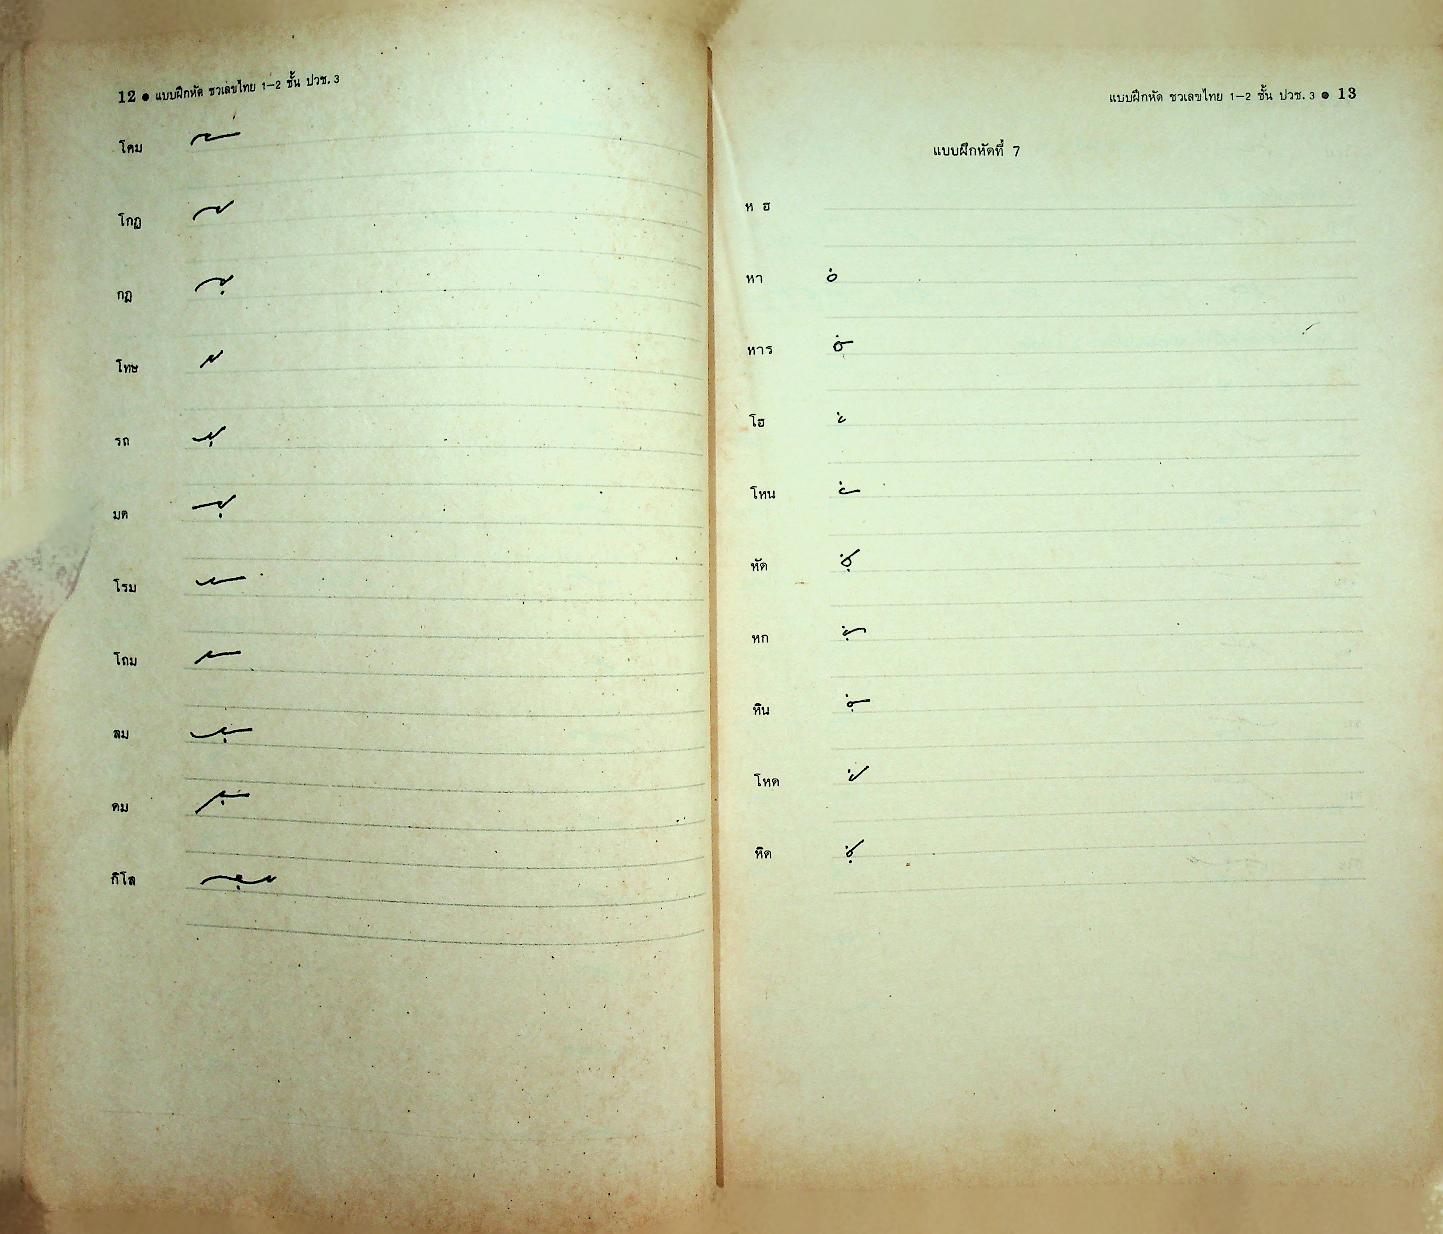 12 ● แบบฝึกหัด ชวเลขไทย 1-2 ชั้น ปวช. 3
โคม
โกฏ
กฏ
โทษ
รถ
มด
โรม
โถม
ลม
คม
กิโล
แบบฝึกหัด ชวเลขไทย 1-2 ชั้น ปวช. 3 ● 13
แบบฝึกหัดที่ 7
ห ฮ
หา
หาร
โฮ
โหน
หัด
หก
หิน
โหด
หิด